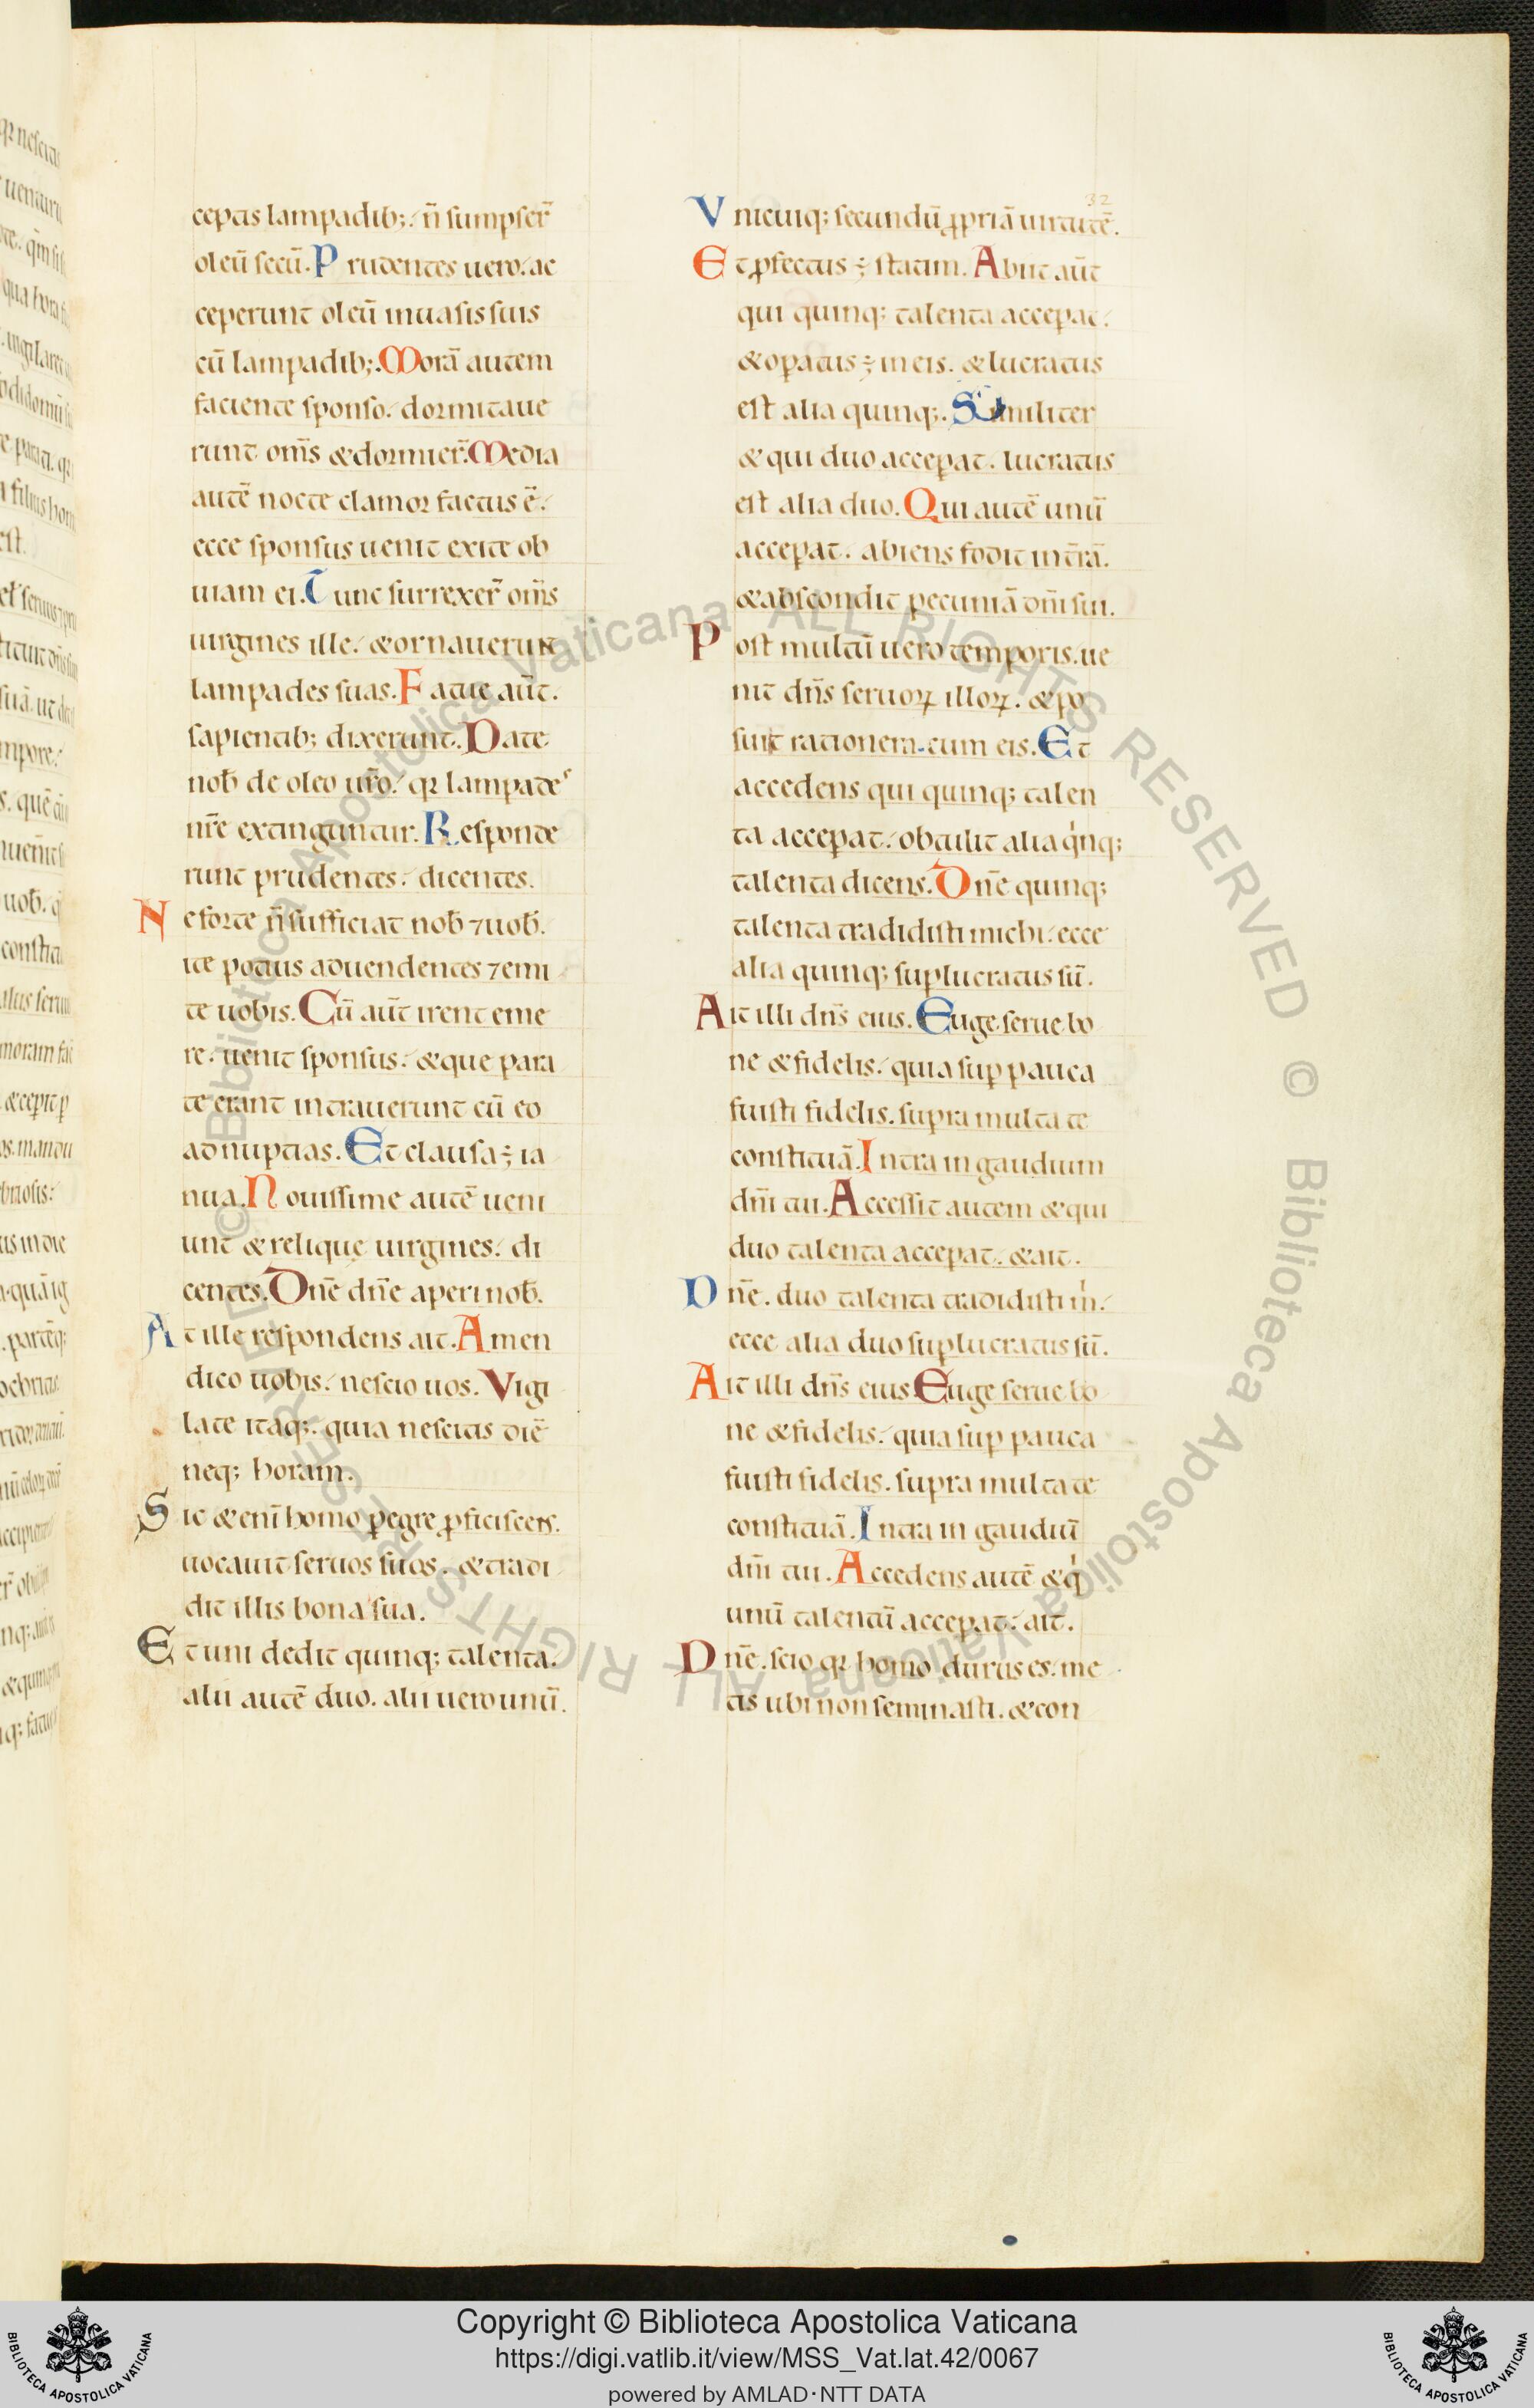 ceptis lampadib;. n̄ sumpser̄
oleū secū. Prudentes uero. ac
ceperunt oleū in uasis suis
cū lampadib;. Morā autem
faciente sponso. dormitaue
runt om̄s & dormier̄. Media
autē nocte clamor factus ē.
ecce sponsus uenit exite ob
uiam ei. Tunc surrexer̄ om̄s
uirgines ille. & ornauerunt
lampades suas. Fatue aūt.
sapientib; dixerunt. Date
nob̄ de oleo ur̄o. qꝛ lampades
nr̄e extinguntur. Responde
runt prudentes. dicentes.
Ne forte n̄ sufficiat nob̄ ⁊ uob̄.
ite potius ad uendentes ⁊ emi
te uobis. Cū aūt irent eme
re. uenit sponsus. & que para
te erant intrauerunt cū eo
ad nuptias. Et clausa ÷ ia
nua. Nouissime autē ueni
unt & reliquę uirgines. di
centes. Dn̄e dn̄e aperi nob̄.
At ille respondens ait. Amen
dico uobis. nescio uos. Vigi
late itaq;. quia nescitis diē
neq; horam.
Sic & eni̅ homo ꝑegre ꝓficiscens.
uocauit seruos suos. & tradi
dit illis bona sua.
Et uni dedit quinq; talenta.
alii autē duo. alii uero unū.
Vnicuiq; secundū ꝓpriā uirtutē.
Et ꝓfectus ÷ statim. Abiit aūt
qui quinq; talenta acceꝑat.
& oꝑatus ÷ in eis. & lucratus
est alia quinq;. Similiter
& qui duo acceꝑat. lucratus
est alia duo. Qui autē unū
acceꝑat. abiens fodit in t̄rā.
& abscondit pecuniā dn̄i sui.
Post multū uero temporis. ue
nit dn̄s seruoꝝ illoꝝ. & po
suit rationem cum eis. Et
accedens qui quinq; talen
ta acceꝑat. obtulit alia qͥnq;
talenta dicens. Dn̄e quinq;
talenta tradidisti michi. ecce
alia quinq; suꝑlucratus sū.
Ait illi dn̄s eius. Euge serue bo
ne & fidelis. quia suꝑ pauca
fuisti fidelis. supra multa te
constituā. Intra in gaudium
dn̄i tui. Accessit autem & qui
duo talenta acceꝑat. & ait.
Dn̄e. duo talenta tradidisti mͥ.
ecce alia duo suꝑlucratus sū.
Ait illi dn̄s eius. Euge serue bo
ne & fidelis. quia suꝑ pauca
fuisti fidelis. supra multa te
constituā. Intra in gaudiū
dn̄i tui. Accedens autē & qͥ
unū talentū acceꝑat. ait.
Dn̄e. scio qꝛ homo durus es. me
tis ubi non seminasti. & con
32
© Biblioteca Apostolica Vaticana ALL RIGHTS RESERVED © Biblioteca Apostolica Vaticana ALL RIGHTS RESERVED
Copyright © Biblioteca Apostolica Vaticana
https://digi.vatlib.it/view/MSS_Vat.lat.42/0067
powered by AMLAD·NTT DATA
BIBLIOTECA APOSTOLICA VATICANA
BIBLIOTECA APOSTOLICA VATICANA